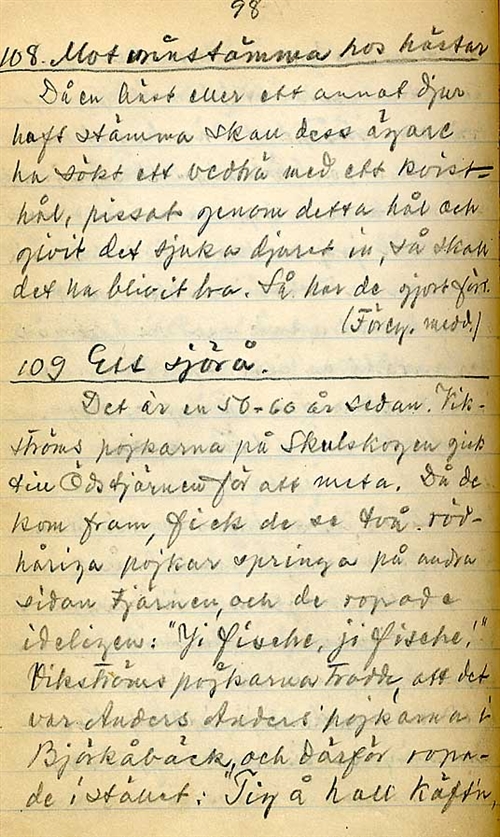 98
108. Mot minstämma hos hästar
Då en häst eller ett annat djur
haft stämma skall dess ägare
ha sökt ett vedträ med ett kvist-
hål, pissat genom detta hål och
givit det sjuka djuret in, så skall
det ha blivit bra. Så har de gjort förr.
(Föreg. medd.)
109 Ett sjörå.
Det är en 50-60 år sedan. Vik-
ströms pojkarna på Skulskogen gick
till Ödstjärnen för att meta. Då de
kom fram, fick de se två röd-
håriga pojkar springa på andra
sidan tjärnen, och de ropade
ideligen: "Ji fische, ji fische!"
Vikströms pojkarna trodde, att det
var Anders Anders pojkarna i
Björkåbäck, och därför ropa-
de i stället: "Tig å håll käft'n,